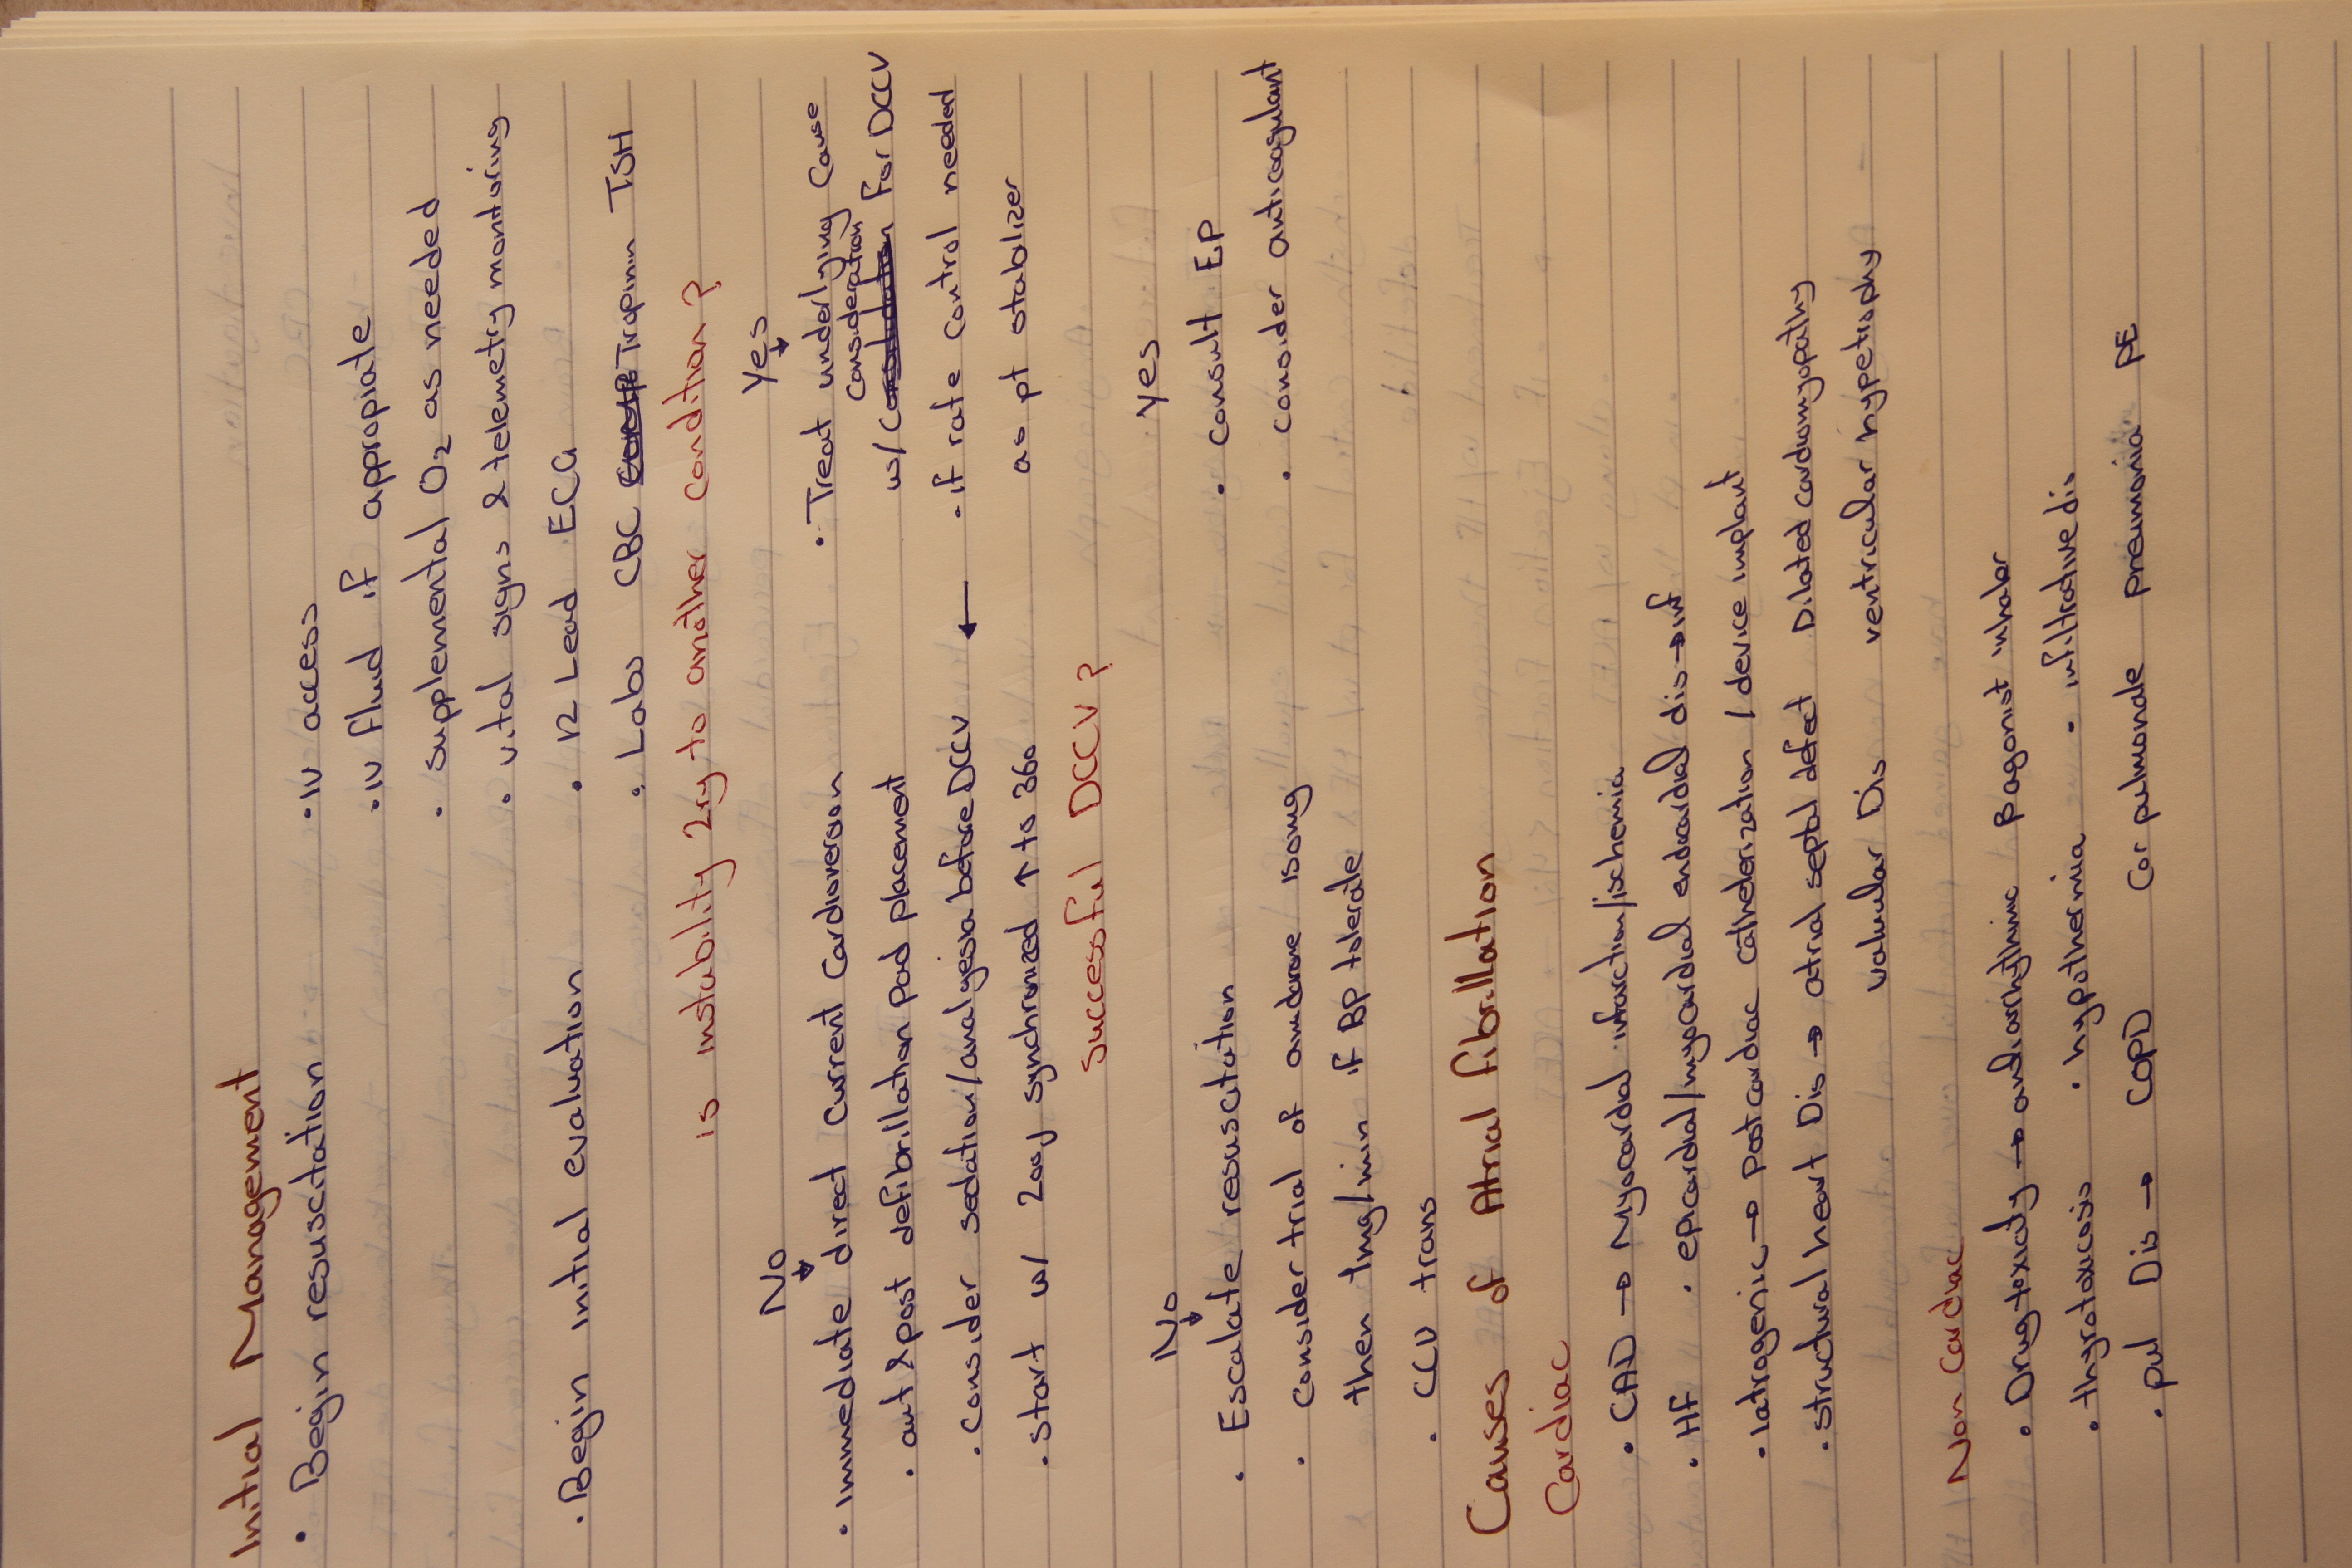 Initial Management
• Begin resuscitation • IV access
• IV fluid if appropiate
• supplemental O₂ as needed
• vital signs & telemetry monitoring
• Begin initial evaluation • 12 Lead ECG
• Labs CBC Tropinin TSH
is instability 2ry to another condition?
No Yes
• Immediate direct current cardioversion • Treat underlying cause
• ant & post defibrillation pad placement w/ consideration for DCCV
• Consider sedation/analgesia before DCCV ← • if rate control needed
• start w/ 200j synchronized ↑ to 360 as pt stabilizer
successful DCCV?
No Yes
• Escalate resuscitation • consult EP
• consider trial of amidarone 150mg • consider anticoagulant
then 1mg/min if BP tolerate
• CCU trans
Causes of Atrial fibrillation
Cardiac
• CAD → Myocardial infarction/ischemia
• HF • epicardial/myocardial endocardial dis → inf
• Iatrogenic → post cardiac catheterization / device implant
• structural heart Dis → atrial septal defect Dilated cardiomyopathy
valvular Dis ventricular hypetrophy
Non Cardiac
• Drug toxicity → antiarhythmic β agonist inhaler
• thyrotoxicosis • hypothermia • infiltrative dis
• pul Dis → COPD Cor pulmonale pneumonia PE